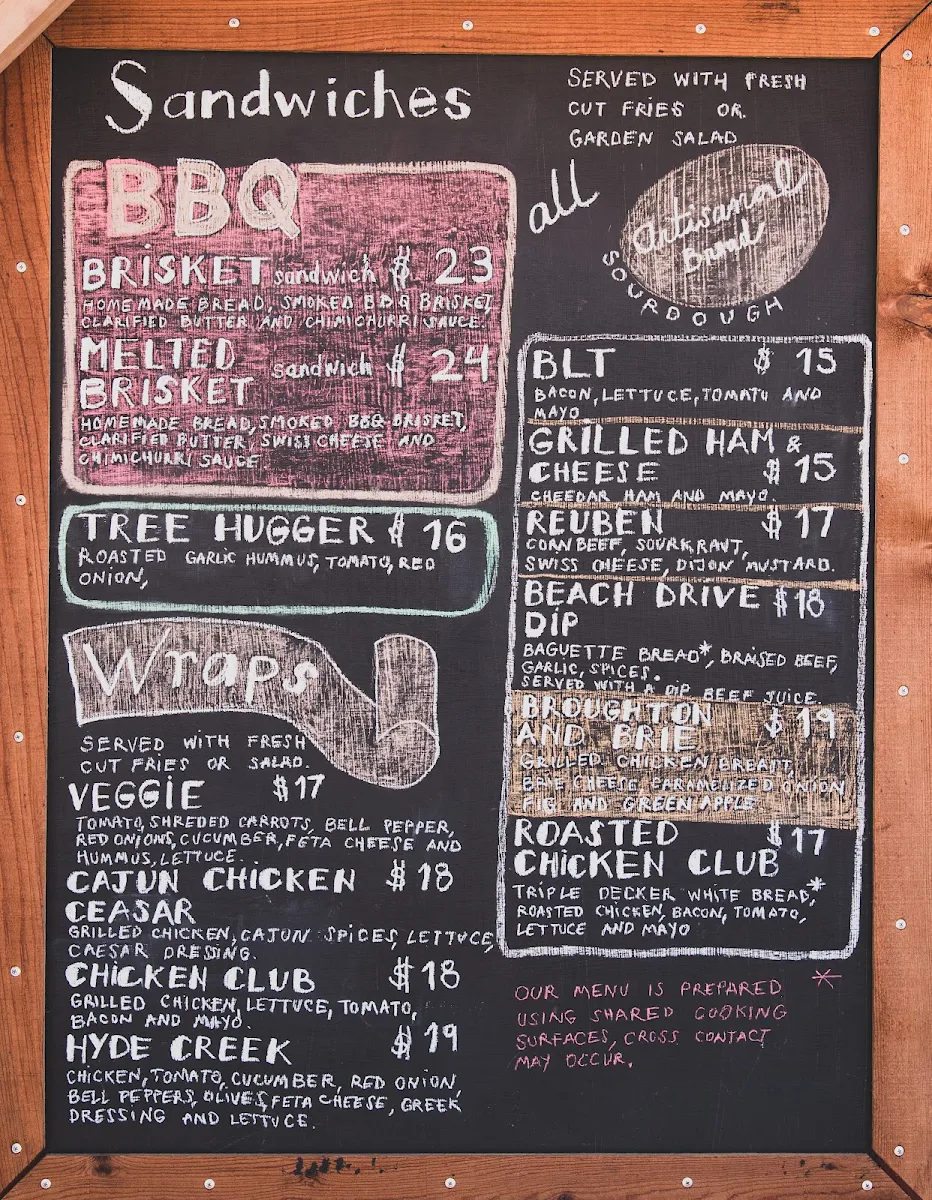 Sandwiches
BBQ
BRISKET sandwich $ 23
HOMEMADE BREAD, SMOKED BBQ BRISKET,
CLARIFIED BUTTER AND CHIMICHURRI SAUCE.
MELTED
BRISKET sandwich $ 24
HOMEMADE BREAD, SMOKED BBQ BRISKET,
CLARIFIED BUTTER, SWISS CHEESE AND
CHIMICHURRI SAUCE
TREE HUGGER $ 16
ROASTED GARLIC HUMMUS, TOMATO, RED
ONION,
Wraps
SERVED WITH FRESH
CUT FRIES OR SALAD.
VEGGIE $17
TOMATO, SHREDED CARROTS, BELL PEPPER,
RED ONIONS, CUCUMBER, FETA CHEESE AND
HUMMUS, LETTUCE.
CAJUN CHICKEN $ 18
CEASAR
GRILLED CHICKEN, CAJUN SPICES, LETTUCE,
CAESAR DRESSING.
CHICKEN CLUB $ 18
GRILLED CHICKEN, LETTUCE, TOMATO,
BACON AND MAYO.
HYDE CREEK $ 19
CHICKEN, TOMATO, CUCUMBER, RED ONION,
BELL PEPPERS, OLIVES, FETA CHEESE, GREEK
DRESSING AND LETTUCE.
SERVED WITH FRESH
CUT FRIES OR
GARDEN SALAD
all
Artisanal
Bread
SOURDOUGH
BLT $ 15
BACON, LETTUCE, TOMATO AND
MAYO
GRILLED HAM &
CHEESE $ 15
CHEEDAR HAM AND MAYO.
REUBEN $ 17
CORN BEEF, SOURKRAUT,
SWISS CHEESE, DIJON MUSTARD.
BEACH DRIVE $18
DIP
BAGUETTE BREAD*, BRAISED BEEF,
GARLIC, SPICES.
SERVED WITH A DIP BEEF JUICE.
BROUGHTON $ 19
AND BRIE
GRILLED CHICKEN BREAST,
BRIE CHEESE CARAMELIZED ONION
FIG AND GREEN APPLE
ROASTED $17
CHICKEN CLUB
TRIPLE DECKER WHITE BREAD,*
ROASTED CHICKEN, BACON, TOMATO,
LETTUCE AND MAYO
OUR MENU IS PREPARED *
USING SHARED COOKING
SURFACES, CROSS CONTACT
MAY OCCUR.